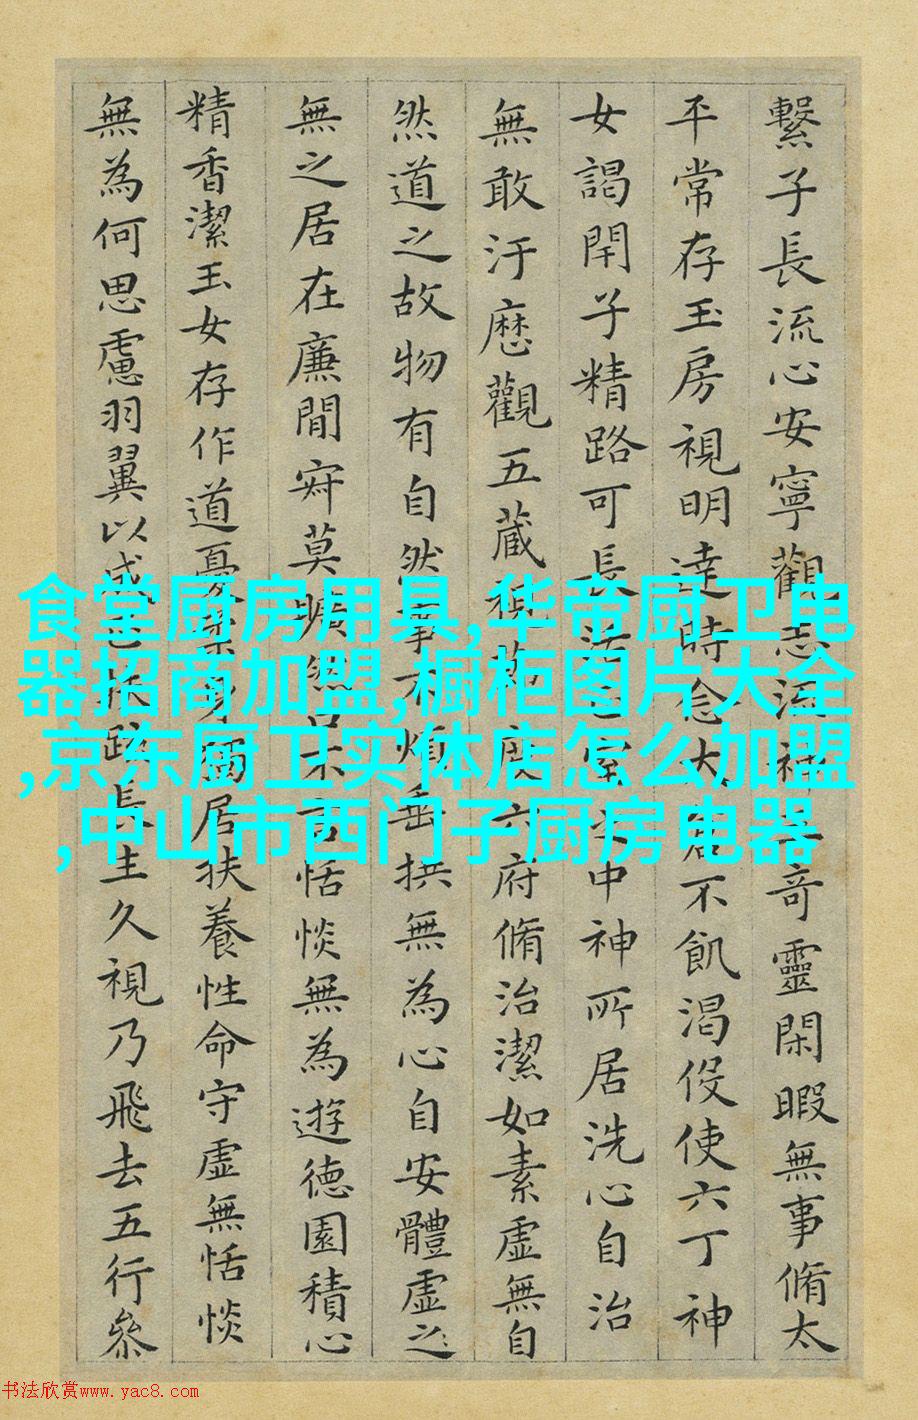 繫子長流心安寧觀志流神奇靈閑暇無事脩太
平常存玉房視明達時念大倉不飢渴伇使六丁神
女謁閇子精路可長活正室之中神所居洗心自治
無敢汙歷觀五藏視節度六府脩治潔如素虛無自
然道之故物有自然事不煩垂拱無為心自安體虛之
無之居在廉間寂莫曠然口不言恬惔無為遊德園積心
精香潔玉女存作道憂柔身獨居扶養性命守虛無恬惔
無為何思慮羽翼以成正扶疏長生久視乃飛去五行參
食堂厨房用具,华帝厨卫电
器招商加盟,橱柜图片大全
,京东厨卫实体店怎么加盟
,中山市西门子厨房电器
书法欣赏www.yac8.com